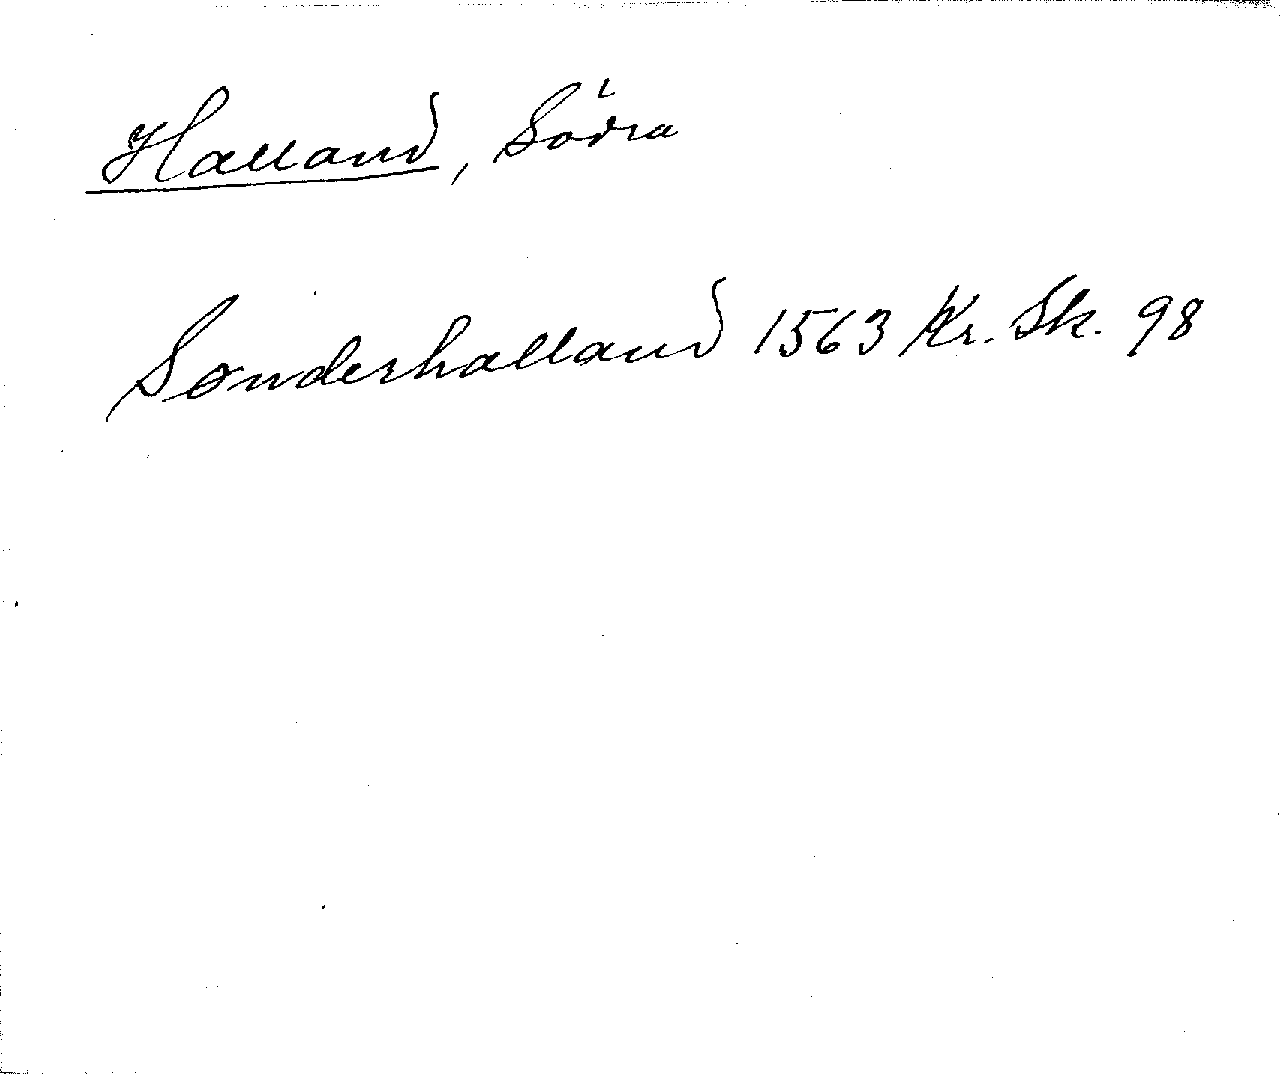 Halland, Södra
Sønderhalland 1563 Kr. Sk. 98